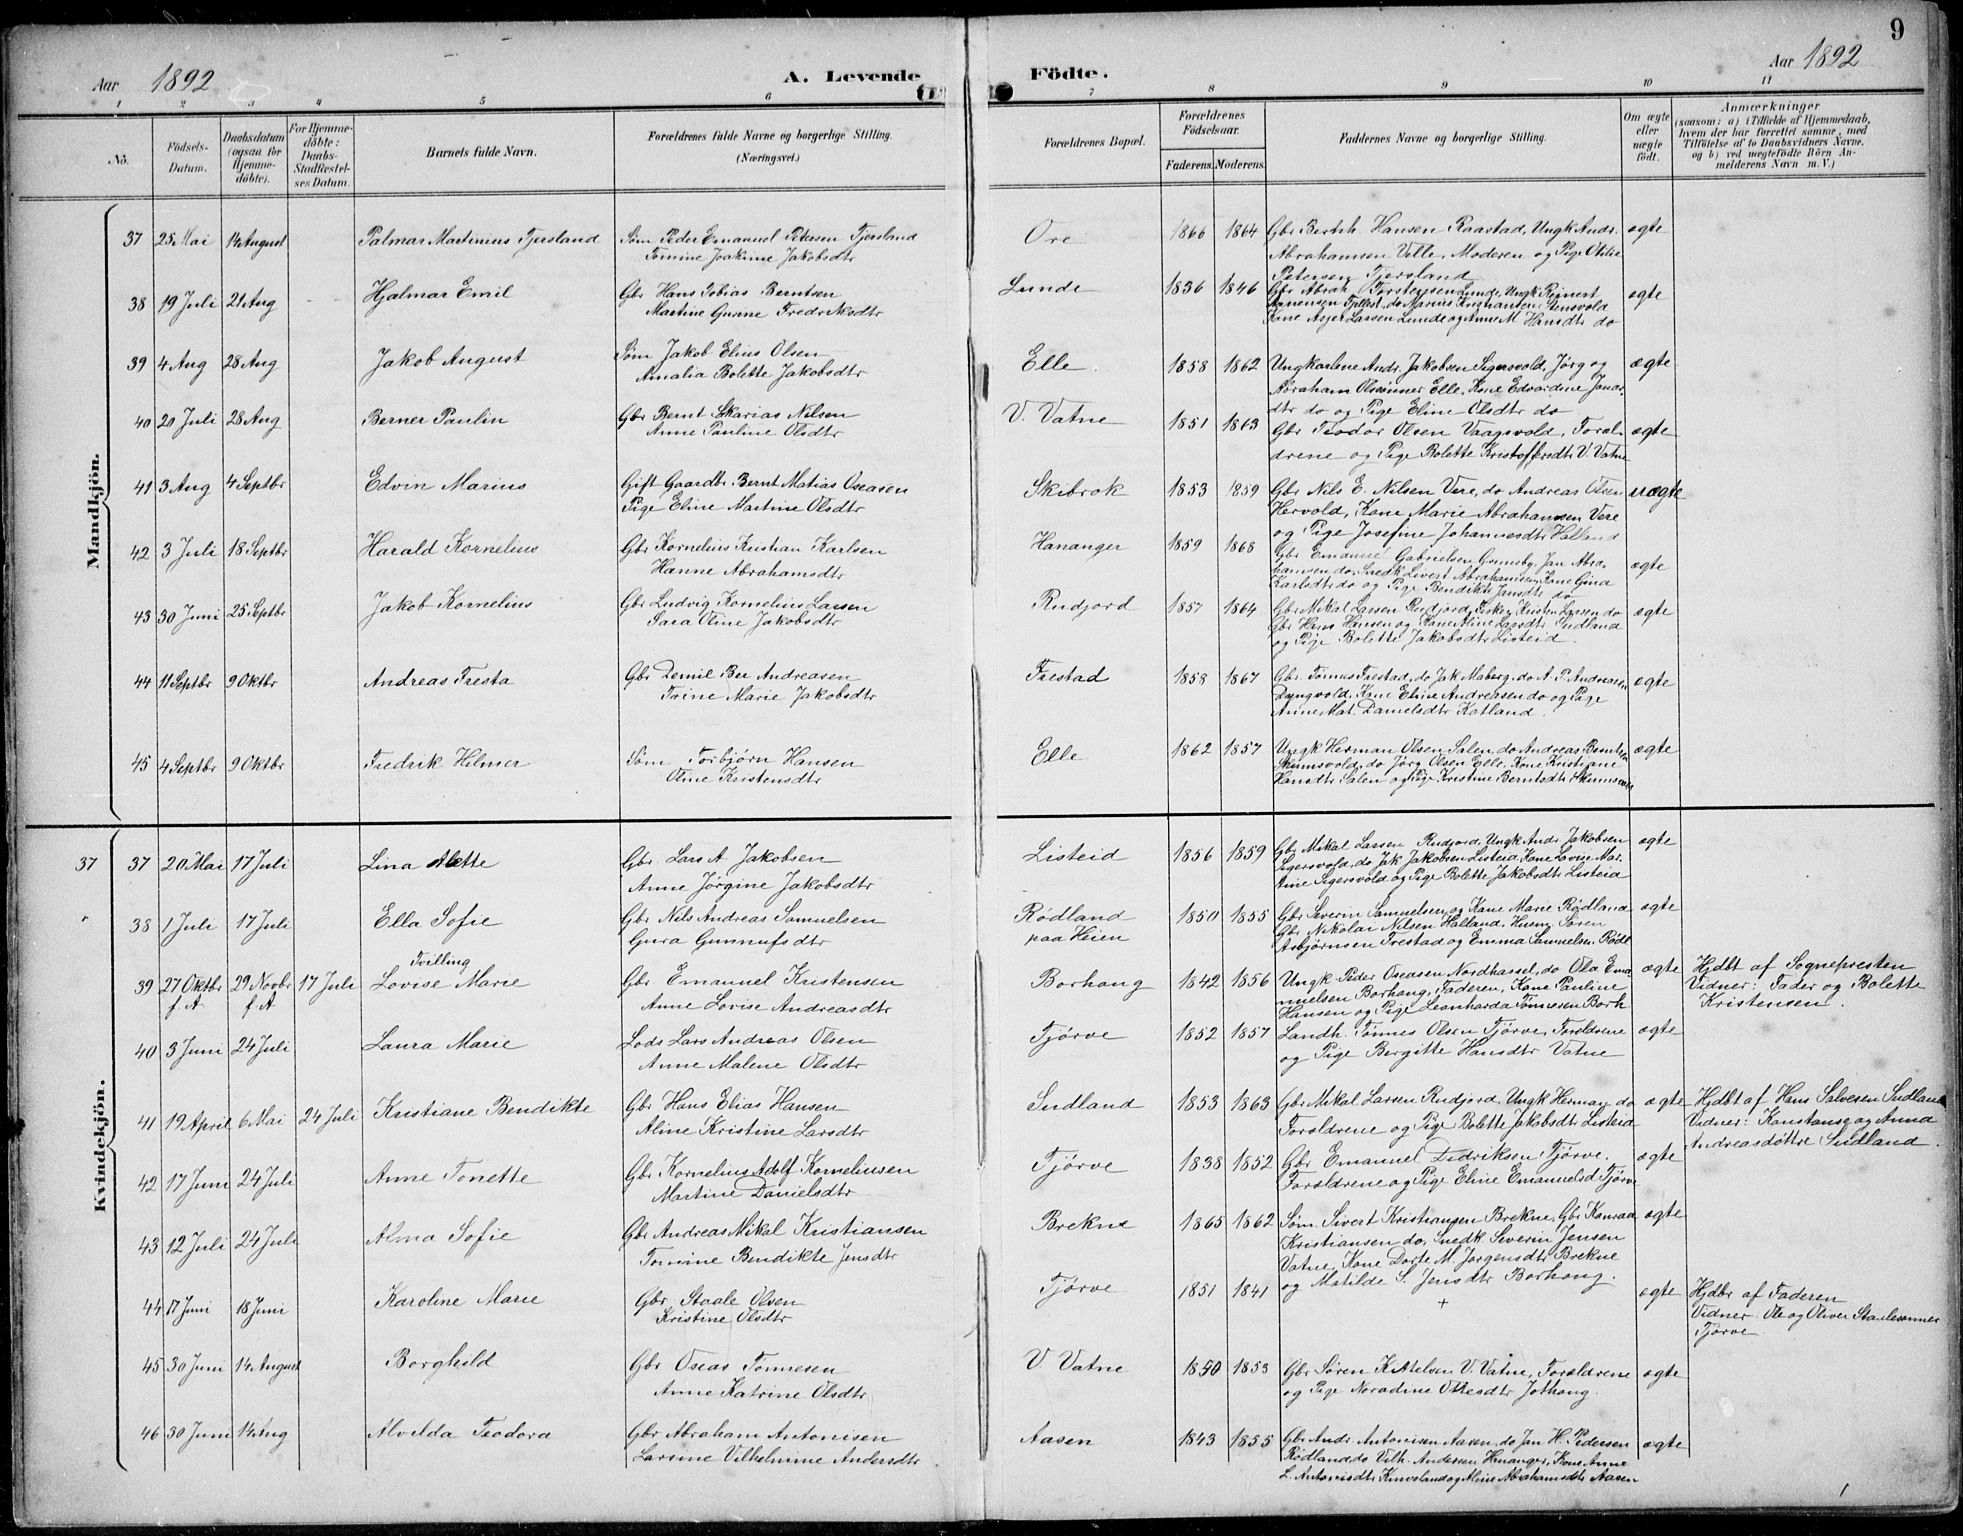 9
Aar 1892
A. Levende
Födte.
Aar 1892
1 2 3 4 5 6 7 8 9 10 11
No.
Födsels-
Datum.
Daabsdatum
(ogsaa for
Hjemme-
döbte).
For Hjemme-
döbte:
Daabs-
Stadfæstel-
ses Datum.
Barnets fulde Navn.
Forældrenes fulde Navne og borgerlige Stilling.
(Næringsvei.)
Forældrenes Bopæl.
Forældrenes
Födselsaar.
Faderens. Moderens.
Faddernes Navne og borgerlige Stilling.
Om ægte
eller
uægte
födt.
Anmærkninger
(saasom: a) i Tilfælde af Hjemmedaab,
hvem der har forrettet samme, med
Tilföielse af to Daabsvidners Navne,
og b) ved uægtefödte Börn An-
melderens Navn m. V.)
Mandkjön.
37 25 Mai 14 August Palmar Martinius Tjersland Søm Peder Emanuel Petersen Tjersland
Tomine Joakime Jakobsdtr
Ore 1866 1864 Gbr Bertsh. Hansen Raastad, Ungk Andr. ægte
Abrahamsen Velle, Moderen og Pige Otilie
Petersen Tjersland
38 19 Juli 21 Aug Hjalmar Emil Gbr Hans Tobias Berntsen
Martine Gurine Fredriksdtr
Lunde 1836 1846 Gbr Abrah. Torstensen Lunde, Ungk Reinert ægte
Tjellest, do Marius Kristiansen
Kone Asjer Larsen Lunde og Anne M Hansdtr do
39 4 Aug 28 Aug Jakob August Søm Jakob Elius Olsen
Amalia Bolette Jakobsdtr
Elle 1858 1862 Ungkarlene Andr. Jakobsen Sigersvold, Jørg og ægte
Abraham Olsønner Elle, Kone Edvardine Jonas-
dtr do og Pige Eline Olsdtr do
40 20 Juli 28 Aug Berner Paulin Gbr Bernt Skarias Nilsen
Anne Pauline Olsdtr
V. Vatne 1851 1863 Gbr Teodor Olsen Vaagsvold, Foræl- ægte
drene og Pige Bolette Kristoffersdtr V. Vatne
41 3 Aug 4 Septbr Edvin Marius Gift Gaardbr. Bernt Matias Oseasen
Pige Eline Martine Olsdtr
Skibrok 1853 1859 Gbr Nils E. Nilsen Vere, do Andreas Olsen uægte
Hervold, Kone Marie Abrahamsen Vere
og Pige Josefine Johannesdtr Halland
42 3 Juli 18 Septbr Harald Kornelius Gbr Kornelius Kristian Karlsen
Hanne Abrahamsdtr
Hananger 1859 1868 Gbr Emanuel Gabrielsen Grimsby, Jan Abra- ægte
hamsen do, Snedk Sivert Abrahamsen, Kone Gina
Karlsdtr do og Pige Bendikte Jensdtr do
43 30 Juni 25 Septbr Jakob Kornelius Gbr Ludvig Kornelius Larsen
Sara Oline Jakobsdtr
Rudjord 1857 1864 Gbr Mikal Larsen Rudjord, Fisker Kristen Larsen do ægte
Gbr Hans Hansen og Kone Aline Larsdtr Sudland
og Pige Bolette Jakobsdtr Listeid
44 11 Septbr 9 Oktbr Andreas Tresta Gbr Demil Ber Andreasen
Trine Marie Jakobsdtr
Frestad 1858 1867 Gbr Tønnes Frestad, do Jak Maberg, do A. P. Andreasen ægte
Dyngvold, Kone Eline Andreasen do og Pige
Anne Mat. Danielsdtr Kotland
45 4 Septbr 9 Oktbr Fredrik Hilmer Søm Torbjørn Hansen
Oline Kristensdtr
Elle 1862 1857 Ungk Herman Olsen Salen, do Andreas Berntsen ægte
Skumsvold, do Jørg Olsen Elle, Kone Kristiane
Hansdtr Salen og Pige Kristine Berntsdtr Skumsvold
Kvindekjön.
37 37 20 Mai 17 Juli Lina Alette Gbr. Lars A. Jakobsen
Anne Jørgine Jakobsdtr
Listeid 1856 1859 Gbr Mikal Larsen Rudjord, Ungk Andr Jakobsen ægte
Sigersvold, do Jak Jakobsen Listeid, Kone Lovise Mar-
tine Sigersvold og Pige Bolette Jakobsdtr Listeid
38 1 Juli 17 Juli Ella Sofie Gbr Nils Andreas Samuelsen
Gura Gunnufsdtr
Rødland
paa Heien 1850 1855 Gbr Severin Samuelsen og Kone Marie Rødland ægte
Gbr Nikolai Nilsen Halland, Husm Søren
Asbjørnsen Frestad og Emma Samuelsen Rødl
39 27 Oktbr f. A 29 Novbr f. A 17 Juli Tvilling
Lovise Marie Gbr Emanuel Kristensen
Anne Lovise Andreasdtr
Borhaug 1842 1856 Ungk Peder Oseasen Nordhassel, do Ola Ema- ægte
nuelsen Borhaug, Faderen, Kone Pauline
Hansen og Pige Leonharda Tønnesen Borh
Hjdbt af Sognepresten
Vidner: Fader og Bolette
Kristensen.
40 3 Juni 24 Juli Laura Marie Lods Lars Andreas Olsen
Anne Malene Olsdtr
Tjørve 1852 1857 Landh. Tønnes Olsen Tjørve, Forældrene ægte
og Pige Bergitte Hansdtr Vatne
41 19 April 6 Mai 24 Juli Kristiane Bendikte Gbr Hans Elias Hansen
Aline Kristine Larsdtr
Sudland 1853 1863 Gbr Mikal Larsen Rudjord, Ungk Herman do ægte
Forældrene og Pige Bolette Jakobsdtr Listeid
Hjdbt af Hans Salvesen Sudland
Vidner: Konstanse og Anna
Andreasdøttre Sudland.
42 17 Juni 24 Juli Anne Tonette Gbr Kornelius Adolf Korneliusen
Martine Danielsdtr
Tjørve 1838 1852 Gbr Emanuel Didriksen Tjørve. ægte
Forældrene og Pige Eline Emanuelsd Tjørve
43 12 Juli 24 Juli Alma Sofie Gbr Andreas Mikal Kristiansen
Tomine Bendikte Jensdtr
Brekne 1865 1862 Søm. Sivert Kristiansen Brekne, Gbr Konrad ægte
Kristiansen do, Snedk Severin Jensen
Vatne, Kone Dorte M. Jørgensdtr Brekne
og Matilde S. Jensdtr Borhaug.
44 17 Juni 18 Juni Karoline Marie Gbr. Staale Olsen
Kristine Olsdtr
Tjørve 1851 1841 + ægte
Hjdbt af Faderen
Vidner Ole og Oliver Staalesønner
Tjørve
45 30 Juni 14 August Borghild Gbr Oseas Tønnesen
Anne Katrine Olsdtr
V. Vatne 1850 1853 Gbr Søren Kittelsen V. Vatne, Forældrene ægte
og Pige Noradine Ottesdtr Jothaug.
46 30 Juni 14 Aug Alvilda Teodora Gbr Abraham Antonisen
Larsine Vilhelmine Andersdtr
Aasen 1843 1855 Gbr Andr. Antonisen Aasen, do Jan H. Pedersen ægte
Rødland, do Vilh. Andersen Hananger, Kone Anne
L. Antonisdtr og Aline Abrahamsdtr Aasen